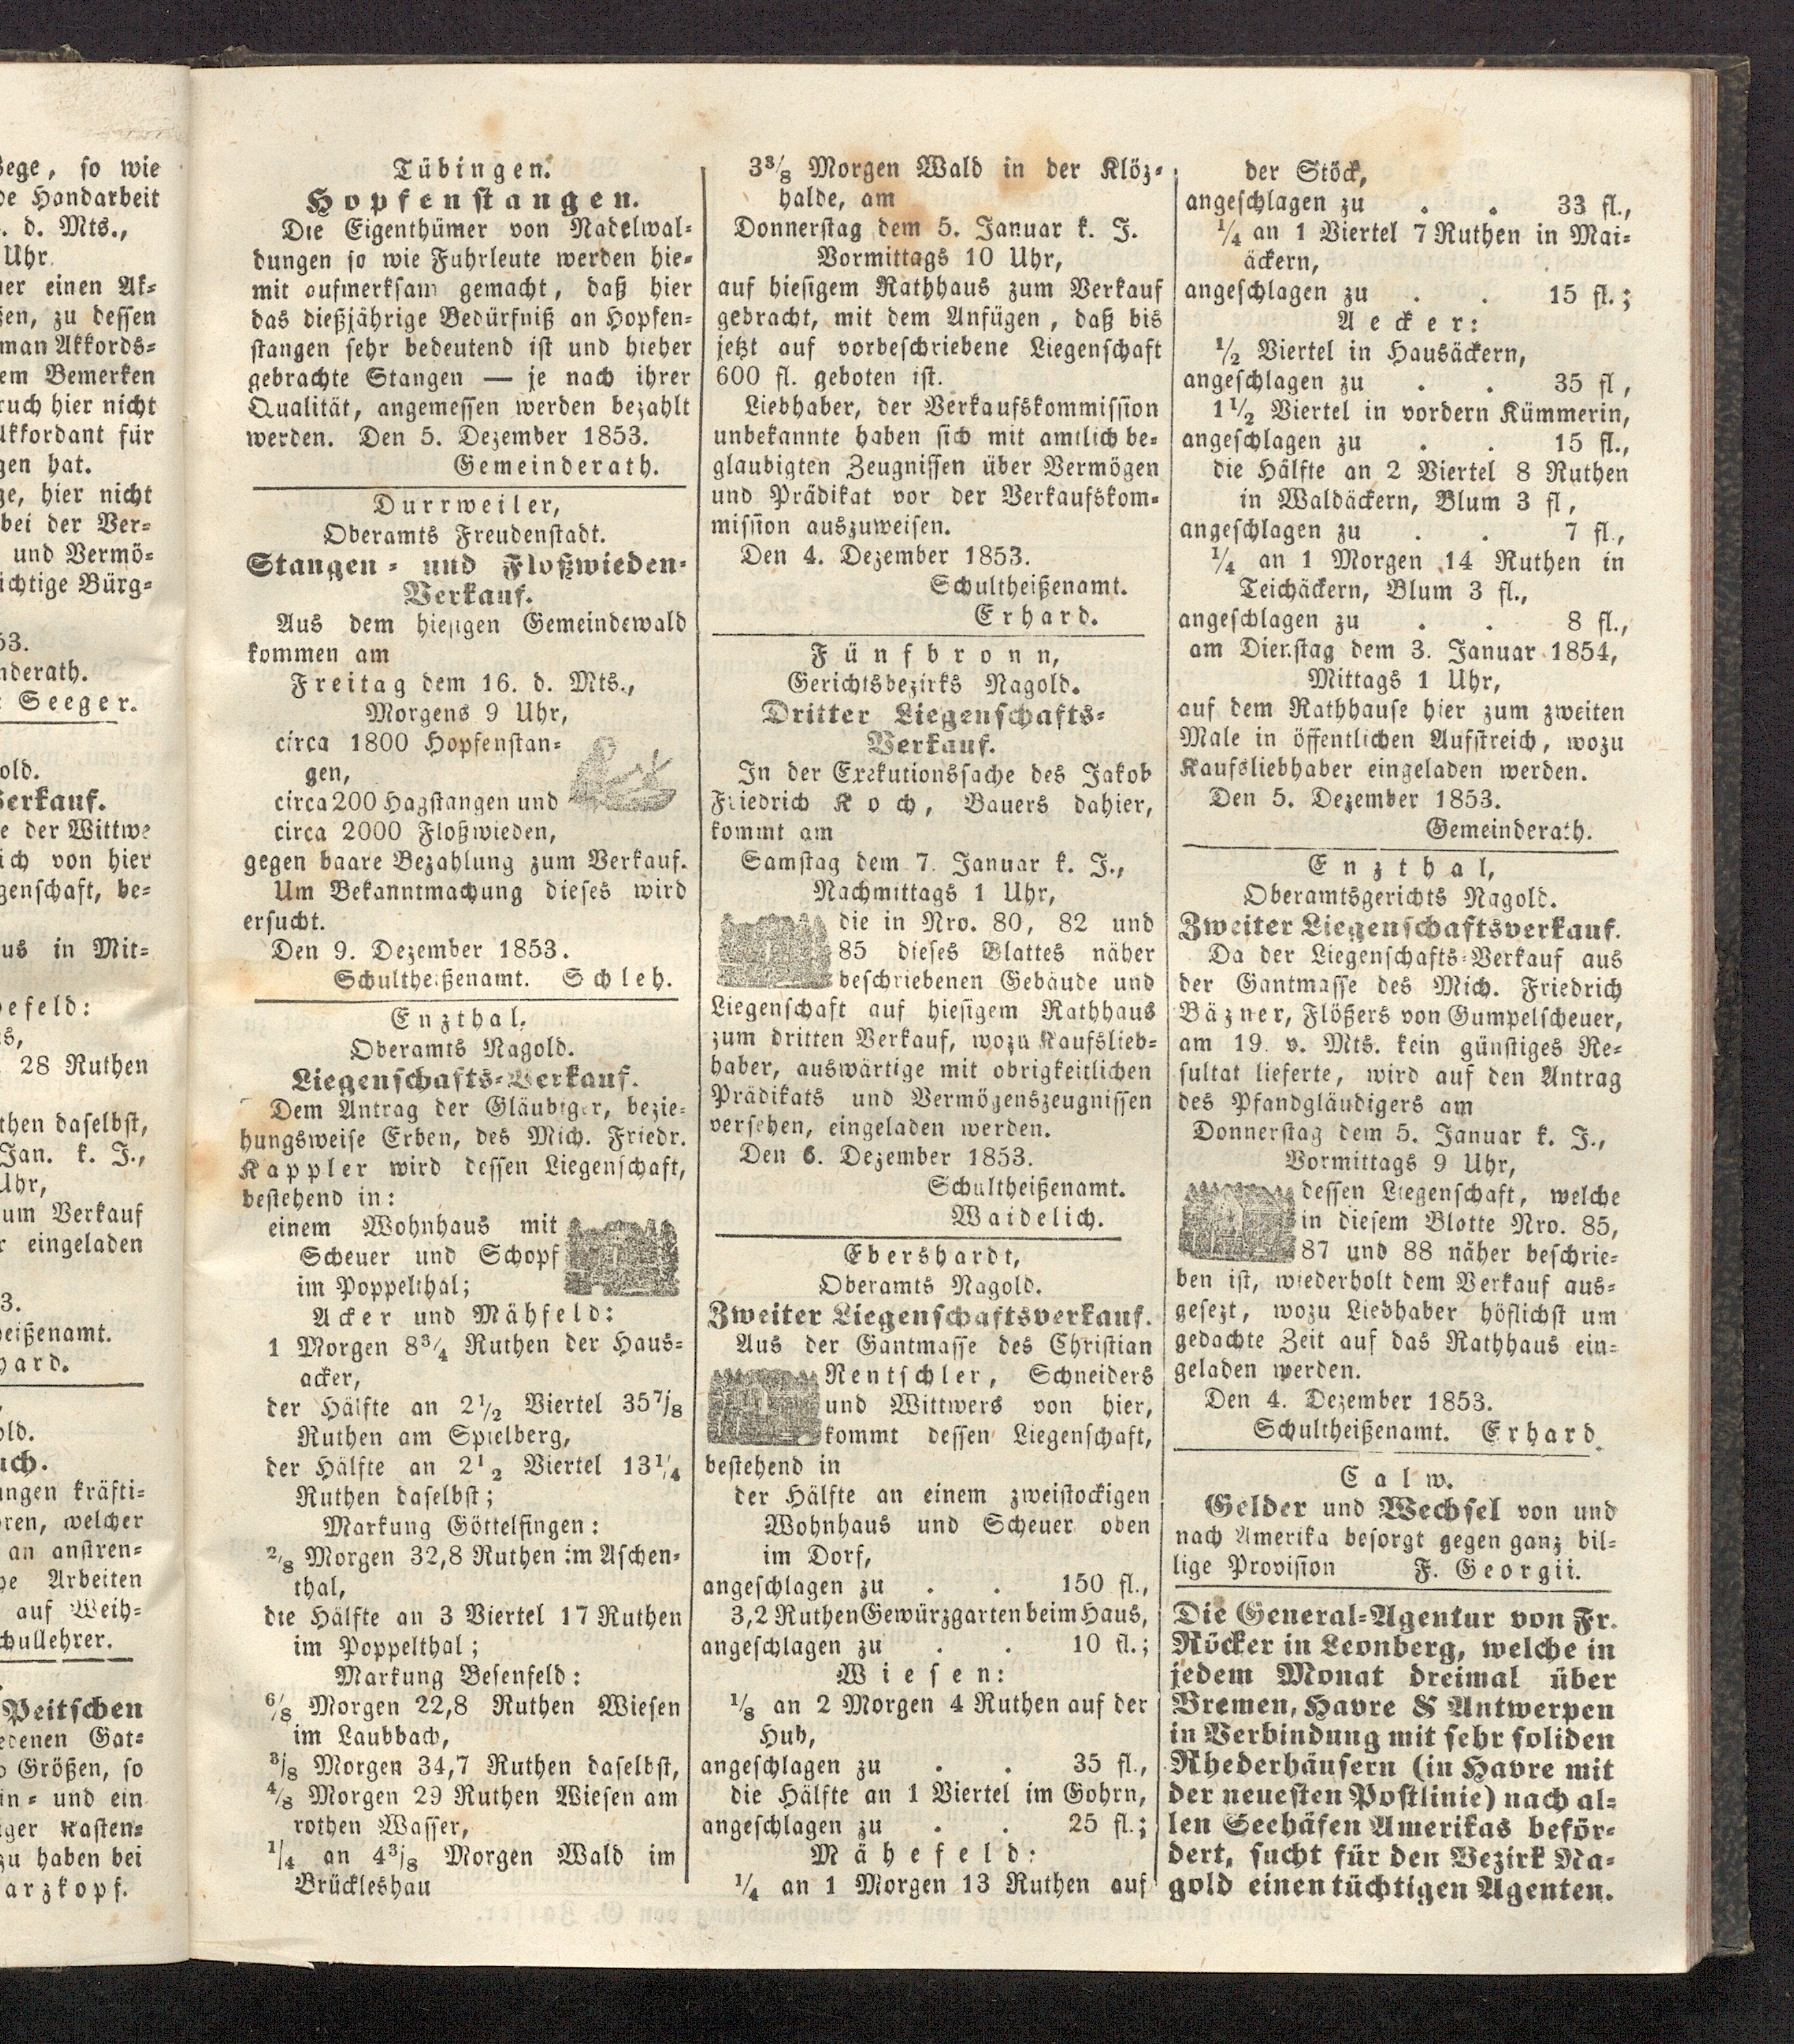 Bege, so wie
de Handarbeit
. d. Mts.,
Uhr
ner einen Ak-
zen, zu dessen
man Akkords-
em Bemerken
ruch hier nicht
Akkordant für
gen hat.
ge, hier nicht
bei der Ver-
und Vermö-
ichtige Bürg-
53.
nderath.
Seeger.
old.
Verkauf.
e der Wittwe
ich von hier
genschaft, be-
us in Mit-
efeld:
s,
28 Ruthen
then daselbst,
Jan. k. J.,
Uhr,
um Verkauf
r eingeladen
3.
eißenamt.
hard.
old.
uch.
ungen kräfti-
oren, welcher
an anstren-
he Arbeiten
auf Weih-
chullehrer.
Peitschen
edenen Gat-
Größen, so
in- und ein
ger Kasten-
zu haben bei
arzkopf.
Tübingen.
Hopfenstangen.
Die Eigenthümer von Nadelwal-
dungen so wie Fuhrleute werden hie-
mit aufmerksam gemacht, daß hier
das dießjährige Bedürfniß an Hopfen-
stangen sehr bedeutend ist und hieher
gebrachte Stangen — je nach ihrer
Qualität, angemessen werden bezahlt
werden. Den 5. Dezember 1853.
Gemeinderath.
Durrweiler,
Oberamts Freudenstadt.
Stangen- und Floßwieden-
Verkauf.
Aus dem hiesigen Gemeindewald
kommen am
Freitag dem 16. d. Mts.,
Morgens 9 Uhr,
circa 1800 Hopfenstan-
gen,
circa 200 Hagstangen und
circa 2000 Floßwieden,
gegen baare Bezahlung zum Verkauf.
Um Bekanntmachung dieses wird
ersucht.
Den 9. Dezember 1853.
Schultheißenamt. Schleh.
Enzthal,
Oberamts Nagold.
Liegenschafts-Verkauf.
Dem Antrag der Gläubiger, bezie-
hungsweise Erben, des Mich. Friedr.
Kappler wird dessen Liegenschaft,
bestehend in:
einem Wohnhaus mit
Scheuer und Schopf
im Poppelthal;
Acker und Mähfeld:
1 Morgen 8¾ Ruthen der Haus-
acker,
der Hälfte an 2½ Viertel 35⅞
Ruthen am Spielberg,
der Hälfte an 2½ Viertel 13¼
Ruthen daselbst;
Markung Göttelfingen:
2/8 Morgen 32,8 Ruthen im Aschen-
thal,
die Hälfte an 3 Viertel 17 Ruthen
im Poppelthal;
Markung Besenfeld:
6/8 Morgen 22,8 Ruthen Wiesen
im Laubbach,
3/8 Morgen 34,7 Ruthen daselbst,
4/8 Morgen 29 Ruthen Wiesen am
rothen Wasser,
1/4 an 4⅜ Morgen Wald im
Brückleshau
3⅜ Morgen Wald in der Klöz-
halde, am
Donnerstag dem 5. Januar k. J.
Vormittags 10 Uhr,
auf hiesigem Rathhaus zum Verkauf
gebracht, mit dem Anfügen, daß bis
jetzt auf vorbeschriebene Liegenschaft
600 fl. geboten ist.
Liebhaber, der Verkaufskommission
unbekannte haben sich mit amtlich be-
glaubigten Zeugnissen über Vermögen
und Prädikat vor der Verkaufskom-
mission auszuweisen.
Den 4. Dezember 1853.
Schultheißenamt.
Erhard.
Fünfbronn,
Gerichtsbezirks Nagold.
Dritter Liegenschafts-
Verkauf.
In der Exekutionssache des Jakob
Friedrich Koch, Bauers dahier,
kommt am
Samstag dem 7. Januar k. J.,
Nachmittags 1 Uhr,
die in Nro. 80, 82 und
85 dieses Blattes näher
beschriebenen Gebäude und
Liegenschaft auf hiesigem Rathhaus
zum dritten Verkauf, wozu Kaufslieb-
haber, auswärtige mit obrigkeitlichen
Prädikats und Vermögenszeugnissen
versehen, eingeladen werden.
Den 6. Dezember 1853.
Schultheißenamt.
Waidelich.
Ebershardt,
Oberamts Nagold.
Zweiter Liegenschaftsverkauf.
Aus der Gantmasse des Christian
Rentschler, Schneiders
und Wittwers von hier,
kommt dessen Liegenschaft,
bestehend in
der Hälfte an einem zweistockigen
Wohnhaus und Scheuer oben
im Dorf,
angeschlagen zu . . 150 fl.,
3,2 Ruthen Gewürzgarten beim Haus,
angeschlagen zu . . 10 fl.;
Wiesen:
1/8 an 2 Morgen 4 Ruthen auf der
Hub,
angeschlagen zu . . 35 fl.,
die Hälfte an 1 Viertel im Gohrn,
angeschlagen zu . . 25 fl.;
Mähefeld:
¼ an 1 Morgen 13 Ruthen auf
der Stöck,
angeschlagen zu . . 33 fl.,
¼ an 1 Viertel 7 Ruthen in Mai-
äckern,
angeschlagen zu . . 15 fl.;
Aecker:
½ Viertel in Hausäckern,
angeschlagen zu . . 35 fl,
1½ Viertel in vordern Kümmerin,
angeschlagen zu . . 15 fl.,
die Hälfte an 2 Viertel 8 Ruthen
in Waldäckern, Blum 3 fl,
angeschlagen zu . . 7 fl.,
¼ an 1 Morgen 14 Ruthen in
Teichäckern, Blum 3 fl.,
angeschlagen zu . . 8 fl.,
am Dienstag dem 3. Januar 1854,
Mittags 1 Uhr,
auf dem Rathhause hier zum zweiten
Male in öffentlichen Aufstreich, wozu
Kaufsliebhaber eingeladen werden.
Den 5. Dezember 1853.
Gemeinderath.
Enzthal,
Oberamtsgerichts Nagold.
Zweiter Liegenschaftsverkauf.
Da der Liegenschafts-Verkauf aus
der Gantmasse des Mich. Friedrich
Bäzner, Flößers von Gumpelscheuer,
am 19. v. Mts. kein günstiges Re-
sultat lieferte, wird auf den Antrag
des Pfandgläubigers am
Donnerstag dem 5. Januar k. J.,
Vormittags 9 Uhr,
dessen Liegenschaft, welche
in diesem Blatte Nro. 85,
87 und 88 näher beschrie-
ben ist, wiederholt dem Verkauf aus-
gesezt, wozu Liebhaber höflichst um
gedachte Zeit auf das Rathhaus ein-
geladen werden.
Den 4. Dezember 1853.
Schultheißenamt. Erhard.
Calw.
Gelder und Wechsel von und
nach Amerika besorgt gegen ganz bil-
lige Provision F. Georgii.
Die General-Agentur von Fr.
Röcker in Leonberg, welche in
jedem Monat dreimal über
Bremen, Havre & Antwerpen
in Verbindung mit sehr soliden
Rhederhäusern (in Havre mit
der neuesten Postlinie) nach al-
len Seehäfen Amerikas beför-
dert, sucht für den Bezirk Na-
gold einen tüchtigen Agenten.